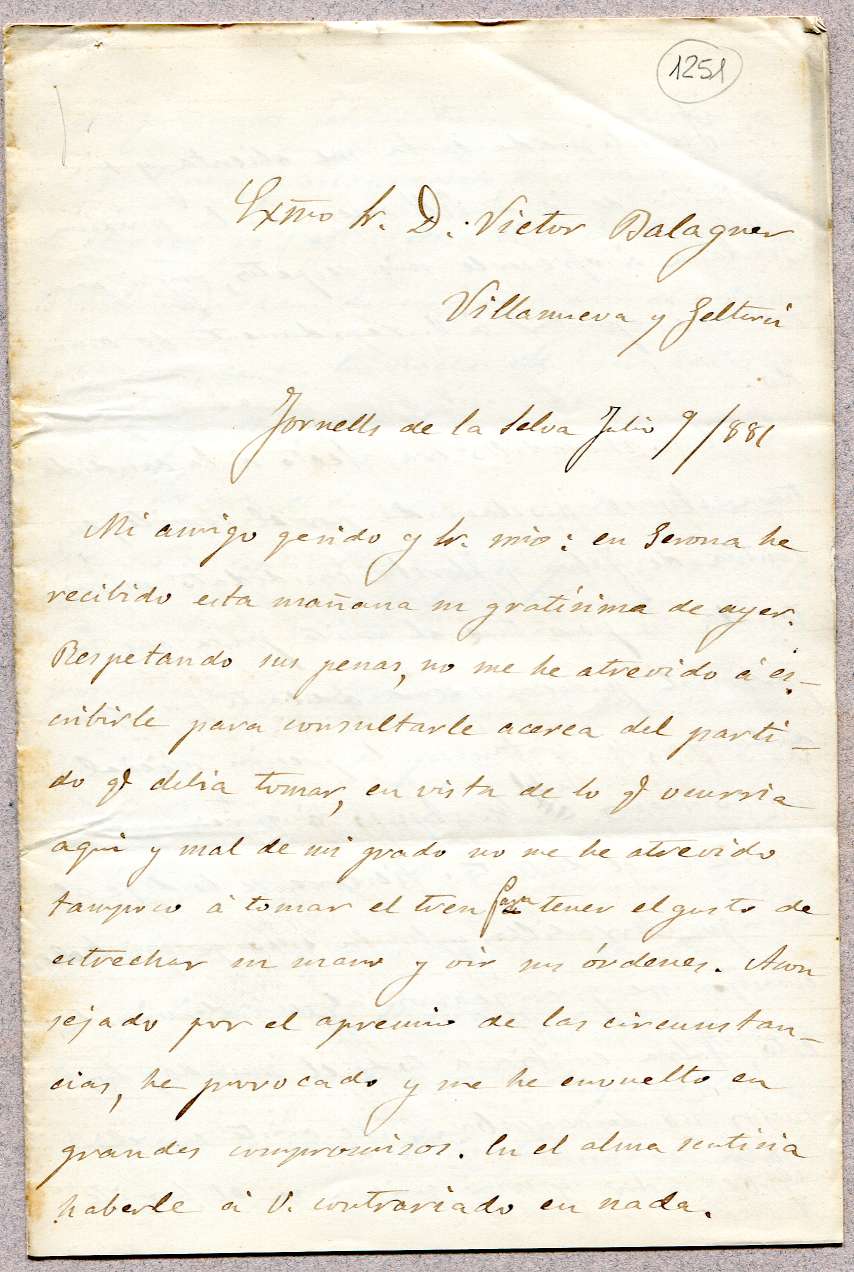 1251
Exmo Sr. D. Victor Balaguer
Villanueva y Geltrú
Fornells de la Selva Julio 9/881
Mi amigo qerido y Sr. mio: en Gerona he
recibido esta mañana su gratísima de ayer.
Respetando sus penas, no me he atrevido á es-
cribirle para consultarle acerca del parti-
do qe debia tomar, en vista de lo qe ocurria
aqui y mal de mi grado no me he atrevido
tampoco á tomar el tren para tener el gusto de
estrechar su mano y oir sus órdenes. Acon
sejado por el apremio de las circunstan-
cias, he provocado y me he envuelto en
grandes compromisos. En el alma sentiria
haberle á V. contrariado en nada.